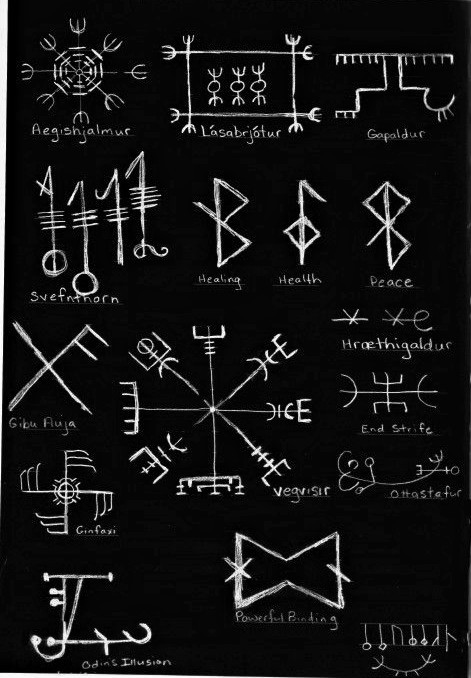 Aegishjalmur
Lásabrjótur
Gapaldur
Svefnthorn
Healing
Health
Peace
Hræthigaldur
Gibu Auja
End Strife
Vegvisir
Ottastafur
Ginfaxi
Powerful Binding
Odins Illusion